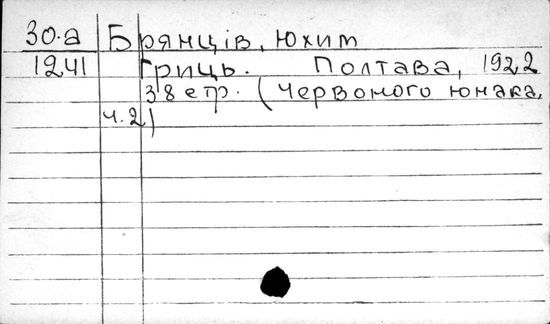 30.а Брянців, Юхим
1241 Гриць. Полтава, 1922
38 стр. (Червоного юнака,
ч. 2)